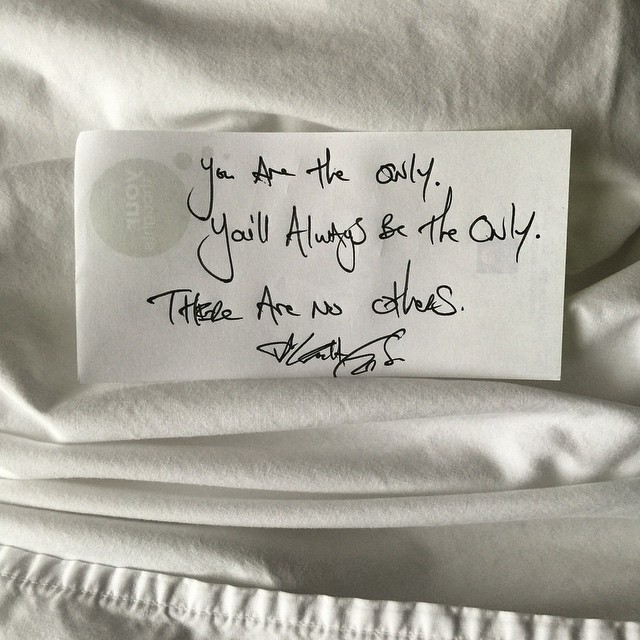 You Are the only.
You'll Always Be the Only.
THERE ARE NO OTHERS.